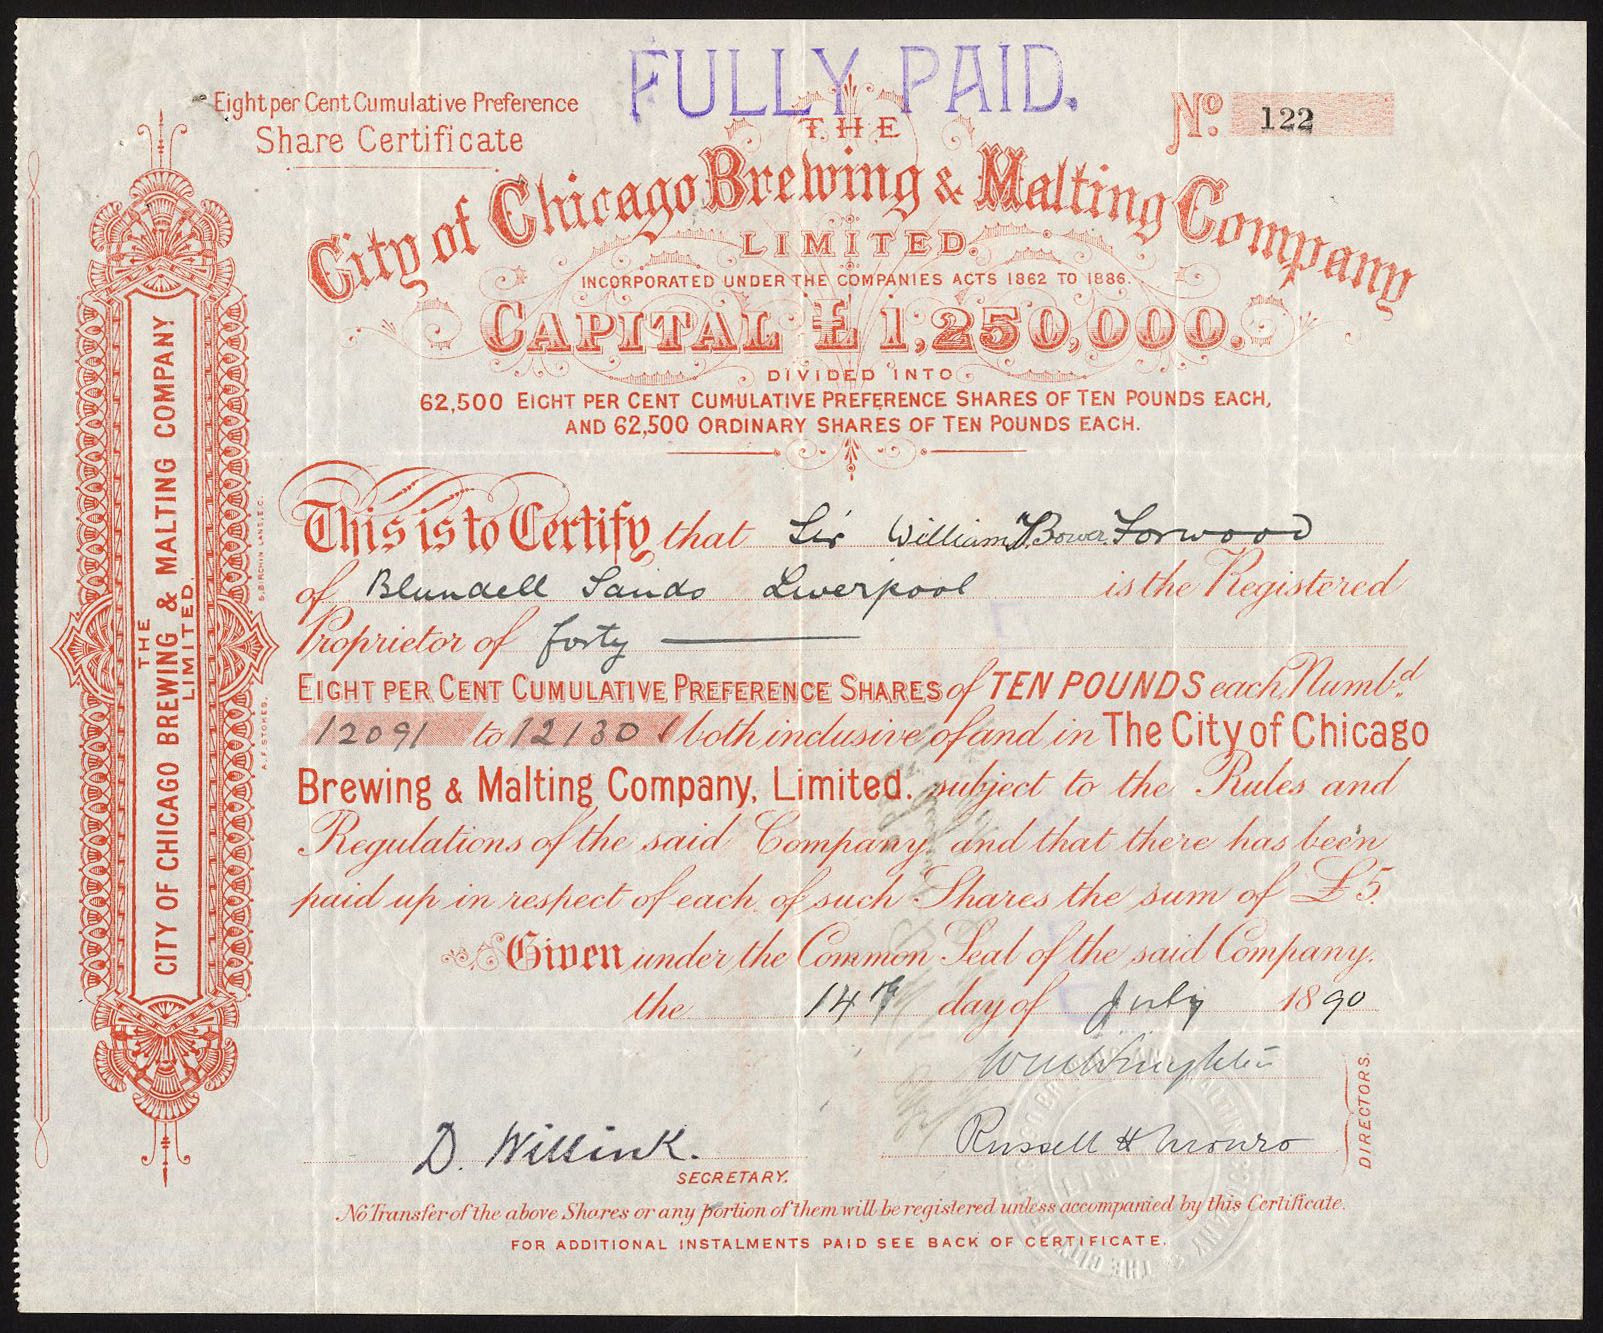 FULLY PAID.
Eight per Cent Cumulative Preference
Share Certificate
No. 122
THE
City of Chicago Brewing & Malting Company
LIMITED.
INCORPORATED UNDER THE COMPANIES ACTS 1862 TO 1886.
CAPITAL £1,250,000.
DIVIDED INTO
62,500 EIGHT PER CENT CUMULATIVE PREFERENCE SHARES OF TEN POUNDS EACH,
AND 62,500 ORDINARY SHARES OF TEN POUNDS EACH.
This is to Certify that Sir William Bower Forwood
of Blundell Sands Liverpool is the Registered
Proprietor of forty
EIGHT PER CENT CUMULATIVE PREFERENCE SHARES of TEN POUNDS each, Numbd.
12091 to 12130 both inclusive of and in The City of Chicago
Brewing & Malting Company, Limited. subject to the Rules and
Regulations of the said Company and that there has been
paid up in respect of each of such Shares the sum of £5.
Given under the Common Seal of the said Company.
the 14th day of July 1890
Russell H Monro
DIRECTORS.
D. Willink.
SECRETARY.
No Transfer of the above Shares or any portion of them will be registered unless accompanied by this Certificate.
FOR ADDITIONAL INSTALMENTS PAID SEE BACK OF CERTIFICATE.
THE
CITY OF CHICAGO BREWING & MALTING COMPANY
LIMITED.
A.F. STOKES. BIRCHIN LANE, E.C.